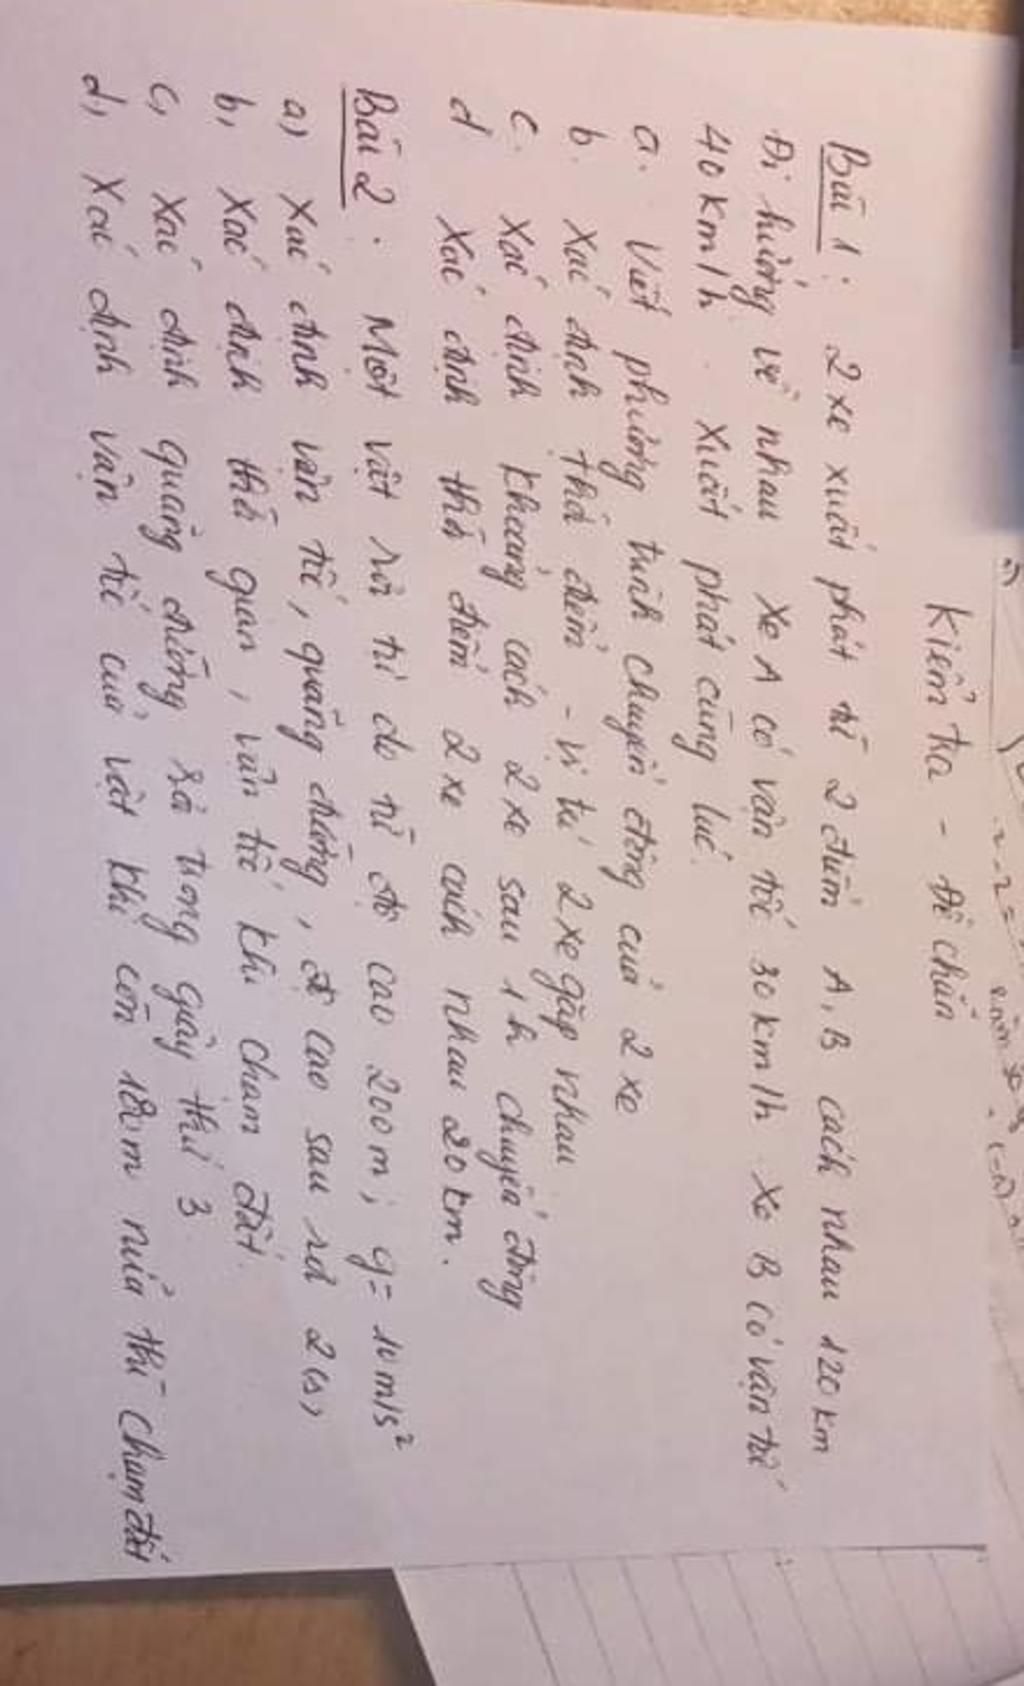 Kiểm tra - Đề chẵn
Bài 1: 2 xe xuất phát từ 2 điểm A, B cách nhau 120 km
Đi hướng về nhau Xe A có vận tốc 30 km/h Xe B có vận tốc
40 km/h. Xuất phát cùng lúc.
a. Viết phương trình chuyển động của 2 xe
b. Xác định thời điểm - vị trí 2 xe gặp nhau
c. Xác định khoảng cách 2 xe sau 1h chuyển động
d Xác định thời điểm 2 xe cách nhau 20 km.
Bài 2: Một vật rơi tự do từ độ cao 200m; g = 10 m/s²
a) Xác định vận tốc, quãng đường, độ cao sau rơi 2(s)
b, Xác định thời gian, vận tốc khi chạm đất.
c, Xác định quãng đường rơi trong giây thứ 3
d, Xác định vận tốc của vật khi còn m nữa thì chạm đất